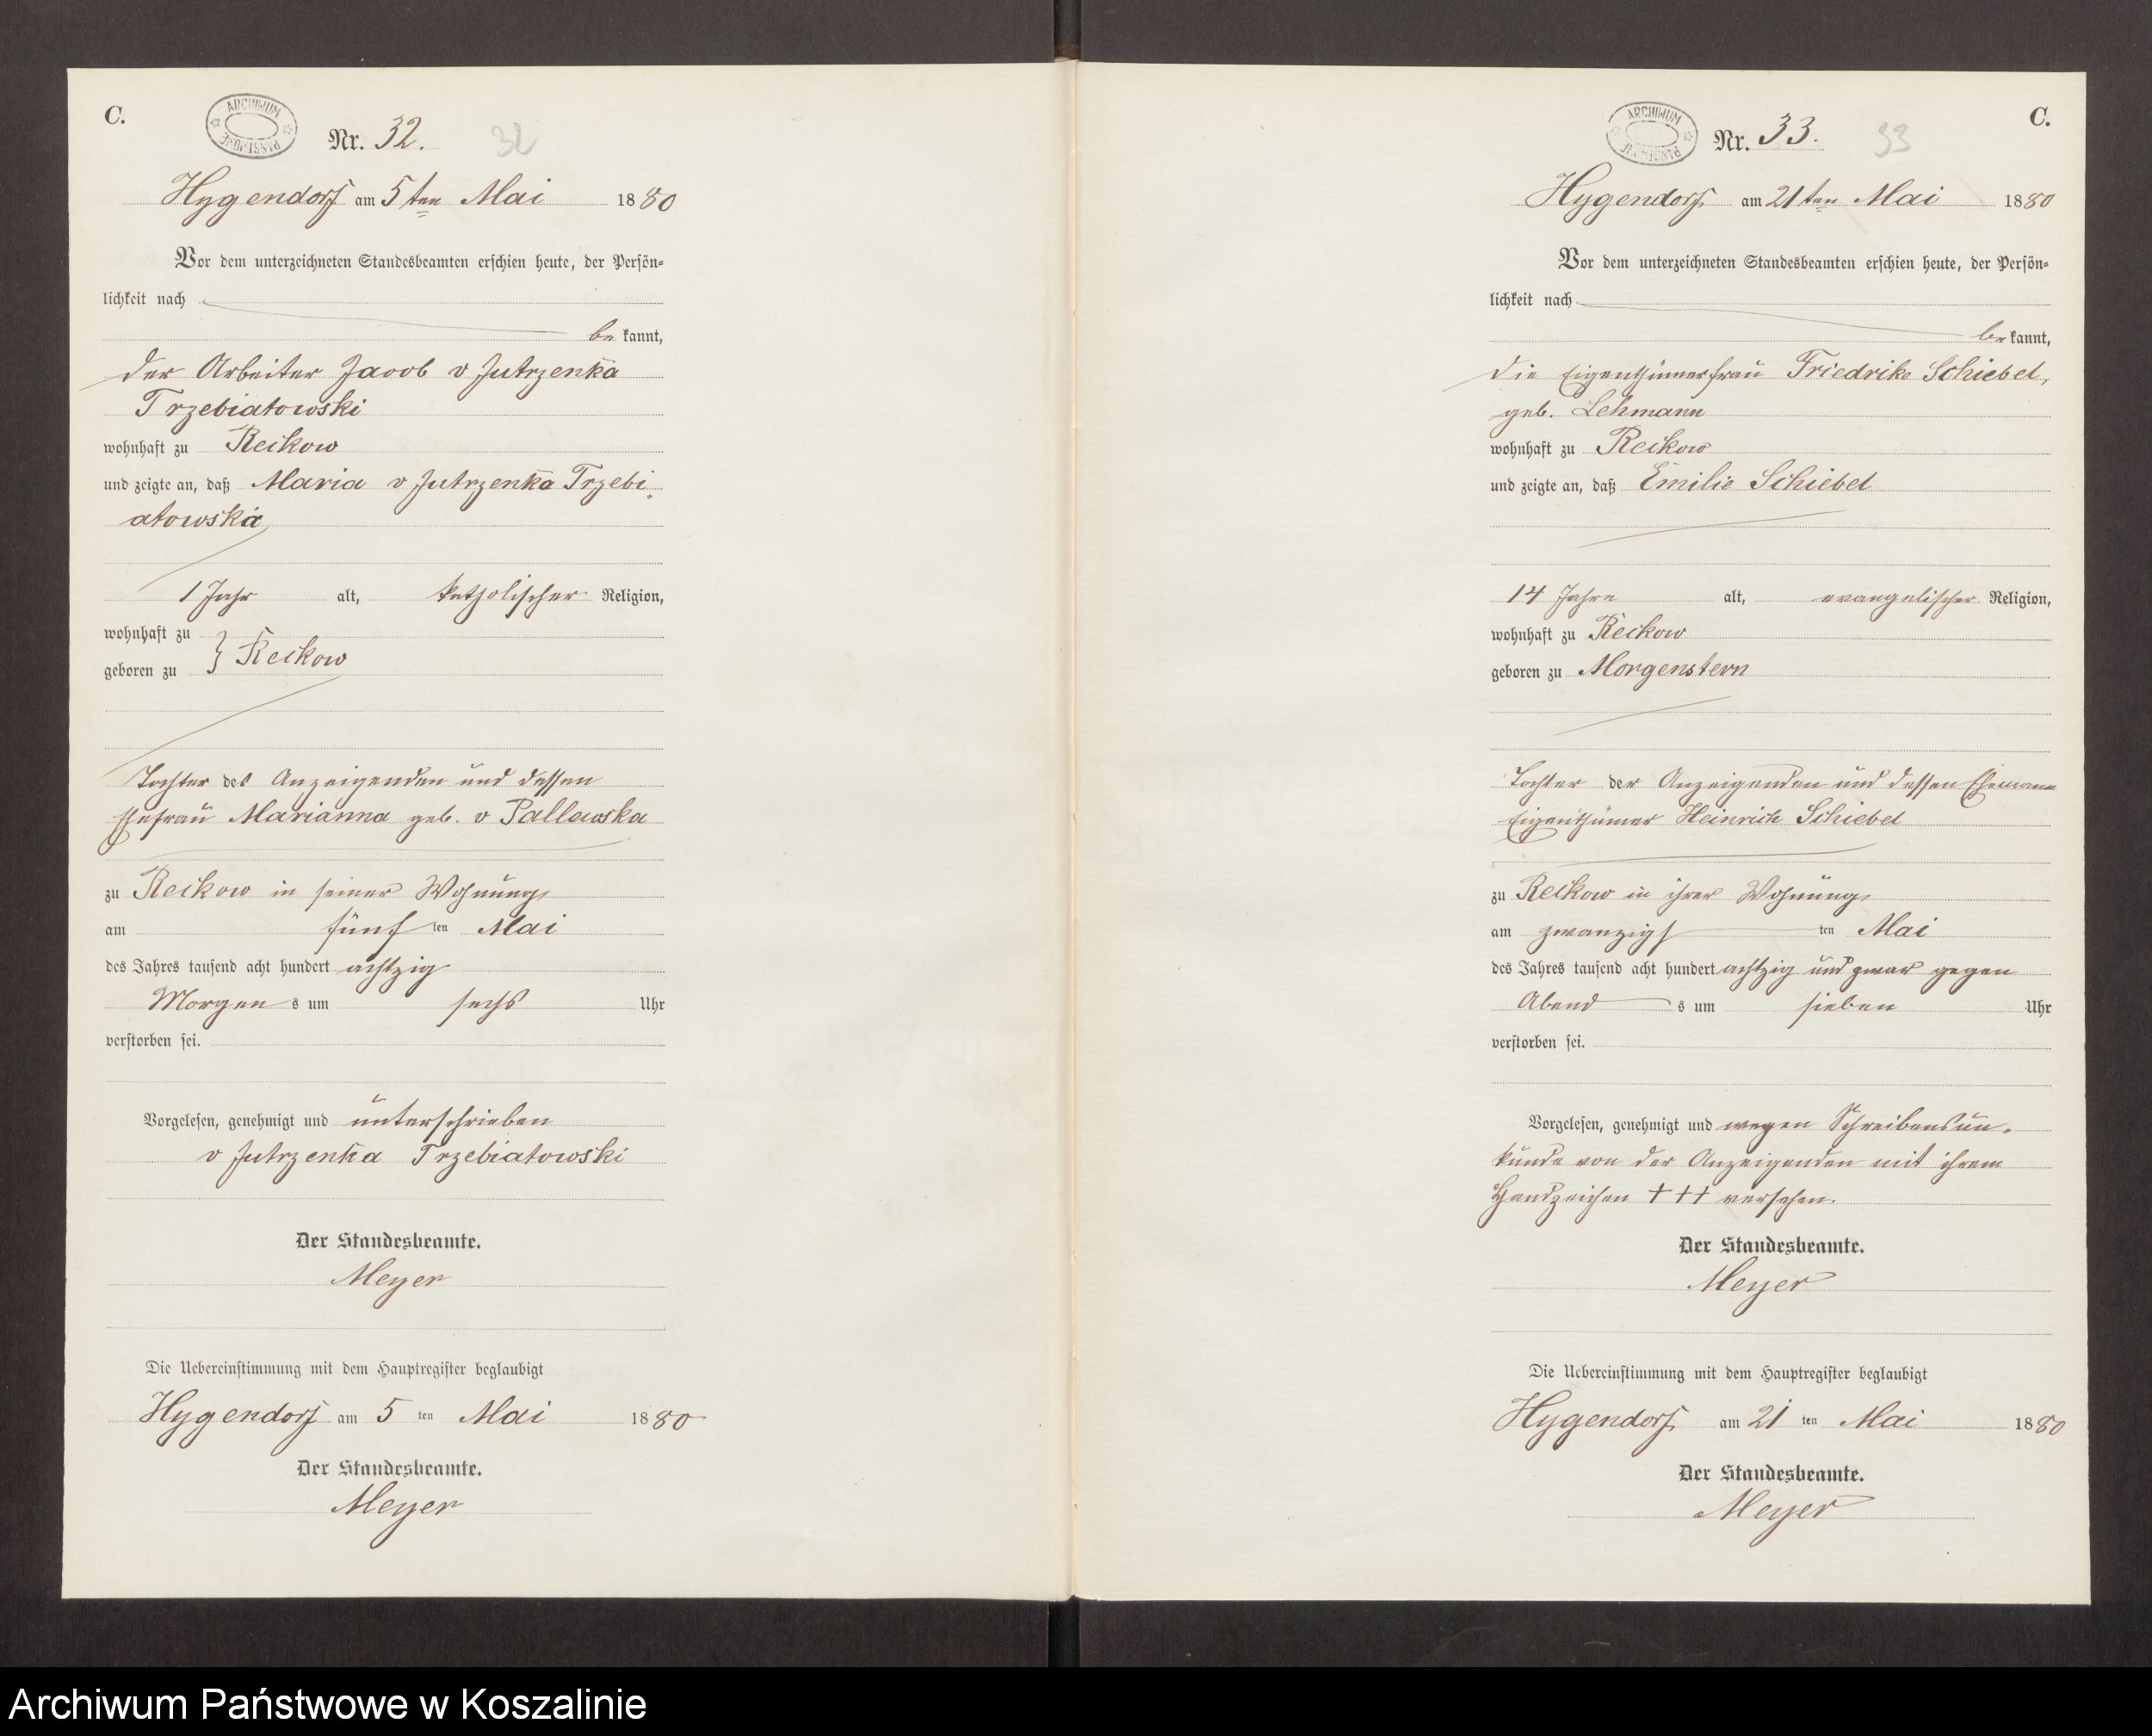 C.
ARCHIWUM PAŃSTWOWE
Nr. 32. 32
Hygendorf am 5ten Mai 1880
Vor dem unterzeichneten Standesbeamten erschien heute, der Persön-
lichkeit nach
bekannt,
der Arbeiter Jacob v Jutrzenka
Trzebiatowski
wohnhaft zu Reckow
und zeigte an, daß Maria v Jutrzenka Trzebi
atowska
1 Jahr alt, katholischer Religion,
wohnhaft zu
geboren zu } Reckow
Tochter des Anzeigenden und dessen
Ehefrau Marianna geb. v Pallawska
zu Reckow in seiner Wohnung
am fünf ten Mai
des Jahres tausend acht hundert achtzig
Morgens um sechs Uhr
verstorben sei.
Vorgelesen, genehmigt und unterschrieben
v Jutrzenka Trzebiatowski
Der Standesbeamte.
Meyer
Die Uebereinstimmung mit dem Hauptregister beglaubigt
Hygendorf am 5 ten Mai 1880
Der Standesbeamte.
Meyer
C.
ARCHIWUM PAŃSTWOWE
Nr. 33. 33
Hygendorf am 21ten Mai 1880
Vor dem unterzeichneten Standesbeamten erschien heute, der Persön-
lichkeit nach
bekannt,
die Eigenthümerfrau Friedrike Schiebel,
geb. Lehmann
wohnhaft zu Reckow
und zeigte an, daß Emilie Schiebel
14 Jahre alt, evangelischer Religion,
wohnhaft zu Reckow
geboren zu Morgenstern
Tochter der Anzeigenden und dessen Ehemann
Eigenthümer Heinrich Schiebel
zu Reckow in ihrer Wohnung
am zwanzigsten Mai
des Jahres tausend acht hundert achtzig und zwar gegen
Abends um sieben Uhr
verstorben sei.
Vorgelesen, genehmigt und wegen Schreibensun-
kunde von der Anzeigenden mit ihrem
Handzeichen +++ versehen.
Der Standesbeamte.
Meyer
Die Uebereinstimmung mit dem Hauptregister beglaubigt
Hygendorf am 21 ten Mai 1880
Der Standesbeamte.
Meyer
Archiwum Państwowe w Koszalinie